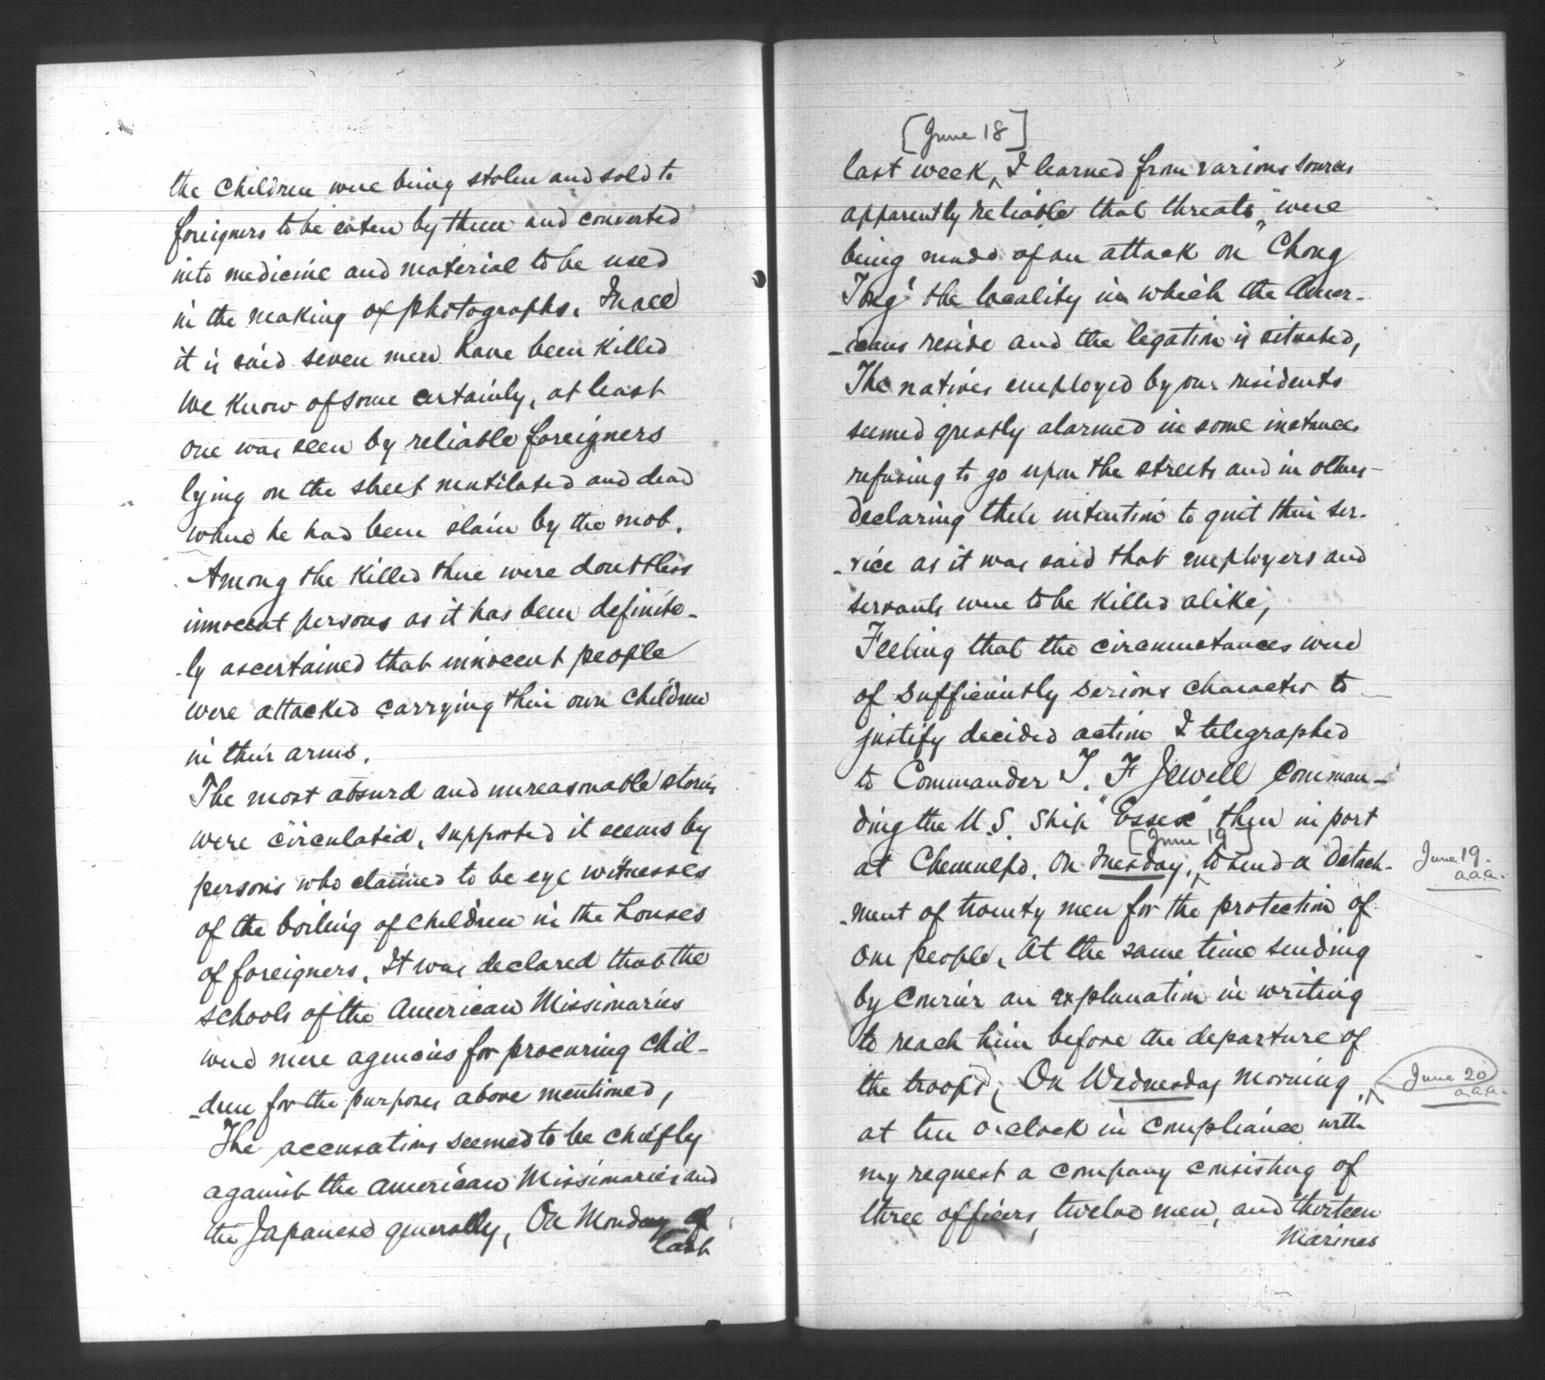 the children were being stolen and sold to
foreigners to be eaten by them and converted
into medicine and material to be used
in the making of photographs. In all
it is said seven men have been killed
we know of some certainly, at least
one was seen by reliable foreigners
lying on the street mutilated and dead
where he had been slain by the mob.
Among the killed there were doubtless
innocent persons as it has been definite-
-ly ascertained that innocent people
were attacked carrying their own children
in their arms.
The most absurd and unreasonable stories
were circulated, supported it seems by
persons who claimed to be eye witnesses
of the boiling of children in the houses
of foreigners. It was declared that the
schools of the American Missionaries
were mere agencies for procuring chil-
-dren for the purposes above mentioned,
The accusations seemed to be chiefly
against the American Missionaries and
the Japanese generally, On Monday of
last
[June 18]
last week, ^ I learned from various sources
apparently reliable that threats were
being made of an attack on "Chong
Tong" the locality in which the Amer-
-icans reside and the legation is situated,
The natives employed by our residents
seemed greatly alarmed in some instances
refusing to go upon the streets and in others
declaring their intention to quit their ser-
-vice as it was said that employers and
servants were to be killed alike,
Feeling that the circumstances were
of sufficiently serious character to
justify decided action I telegraphed
to Commander T. F Jewell comman-
ding the U.S. Ship "Essex" then in port
[June 19]
at Chemulpo, On Tuesday, ^ to send a detach-
June 19.
a.a.a.
-ment of twenty men for the protection of
our people, At the same time sending
by courier an explanation in writing
to reach him before the departure of
the troops, On Wednesday morning, ^
June 20
a.a.a.
at ten o'clock in compliance with
my request a company consisting of
three officers, twelve men, and thirteen
Marines